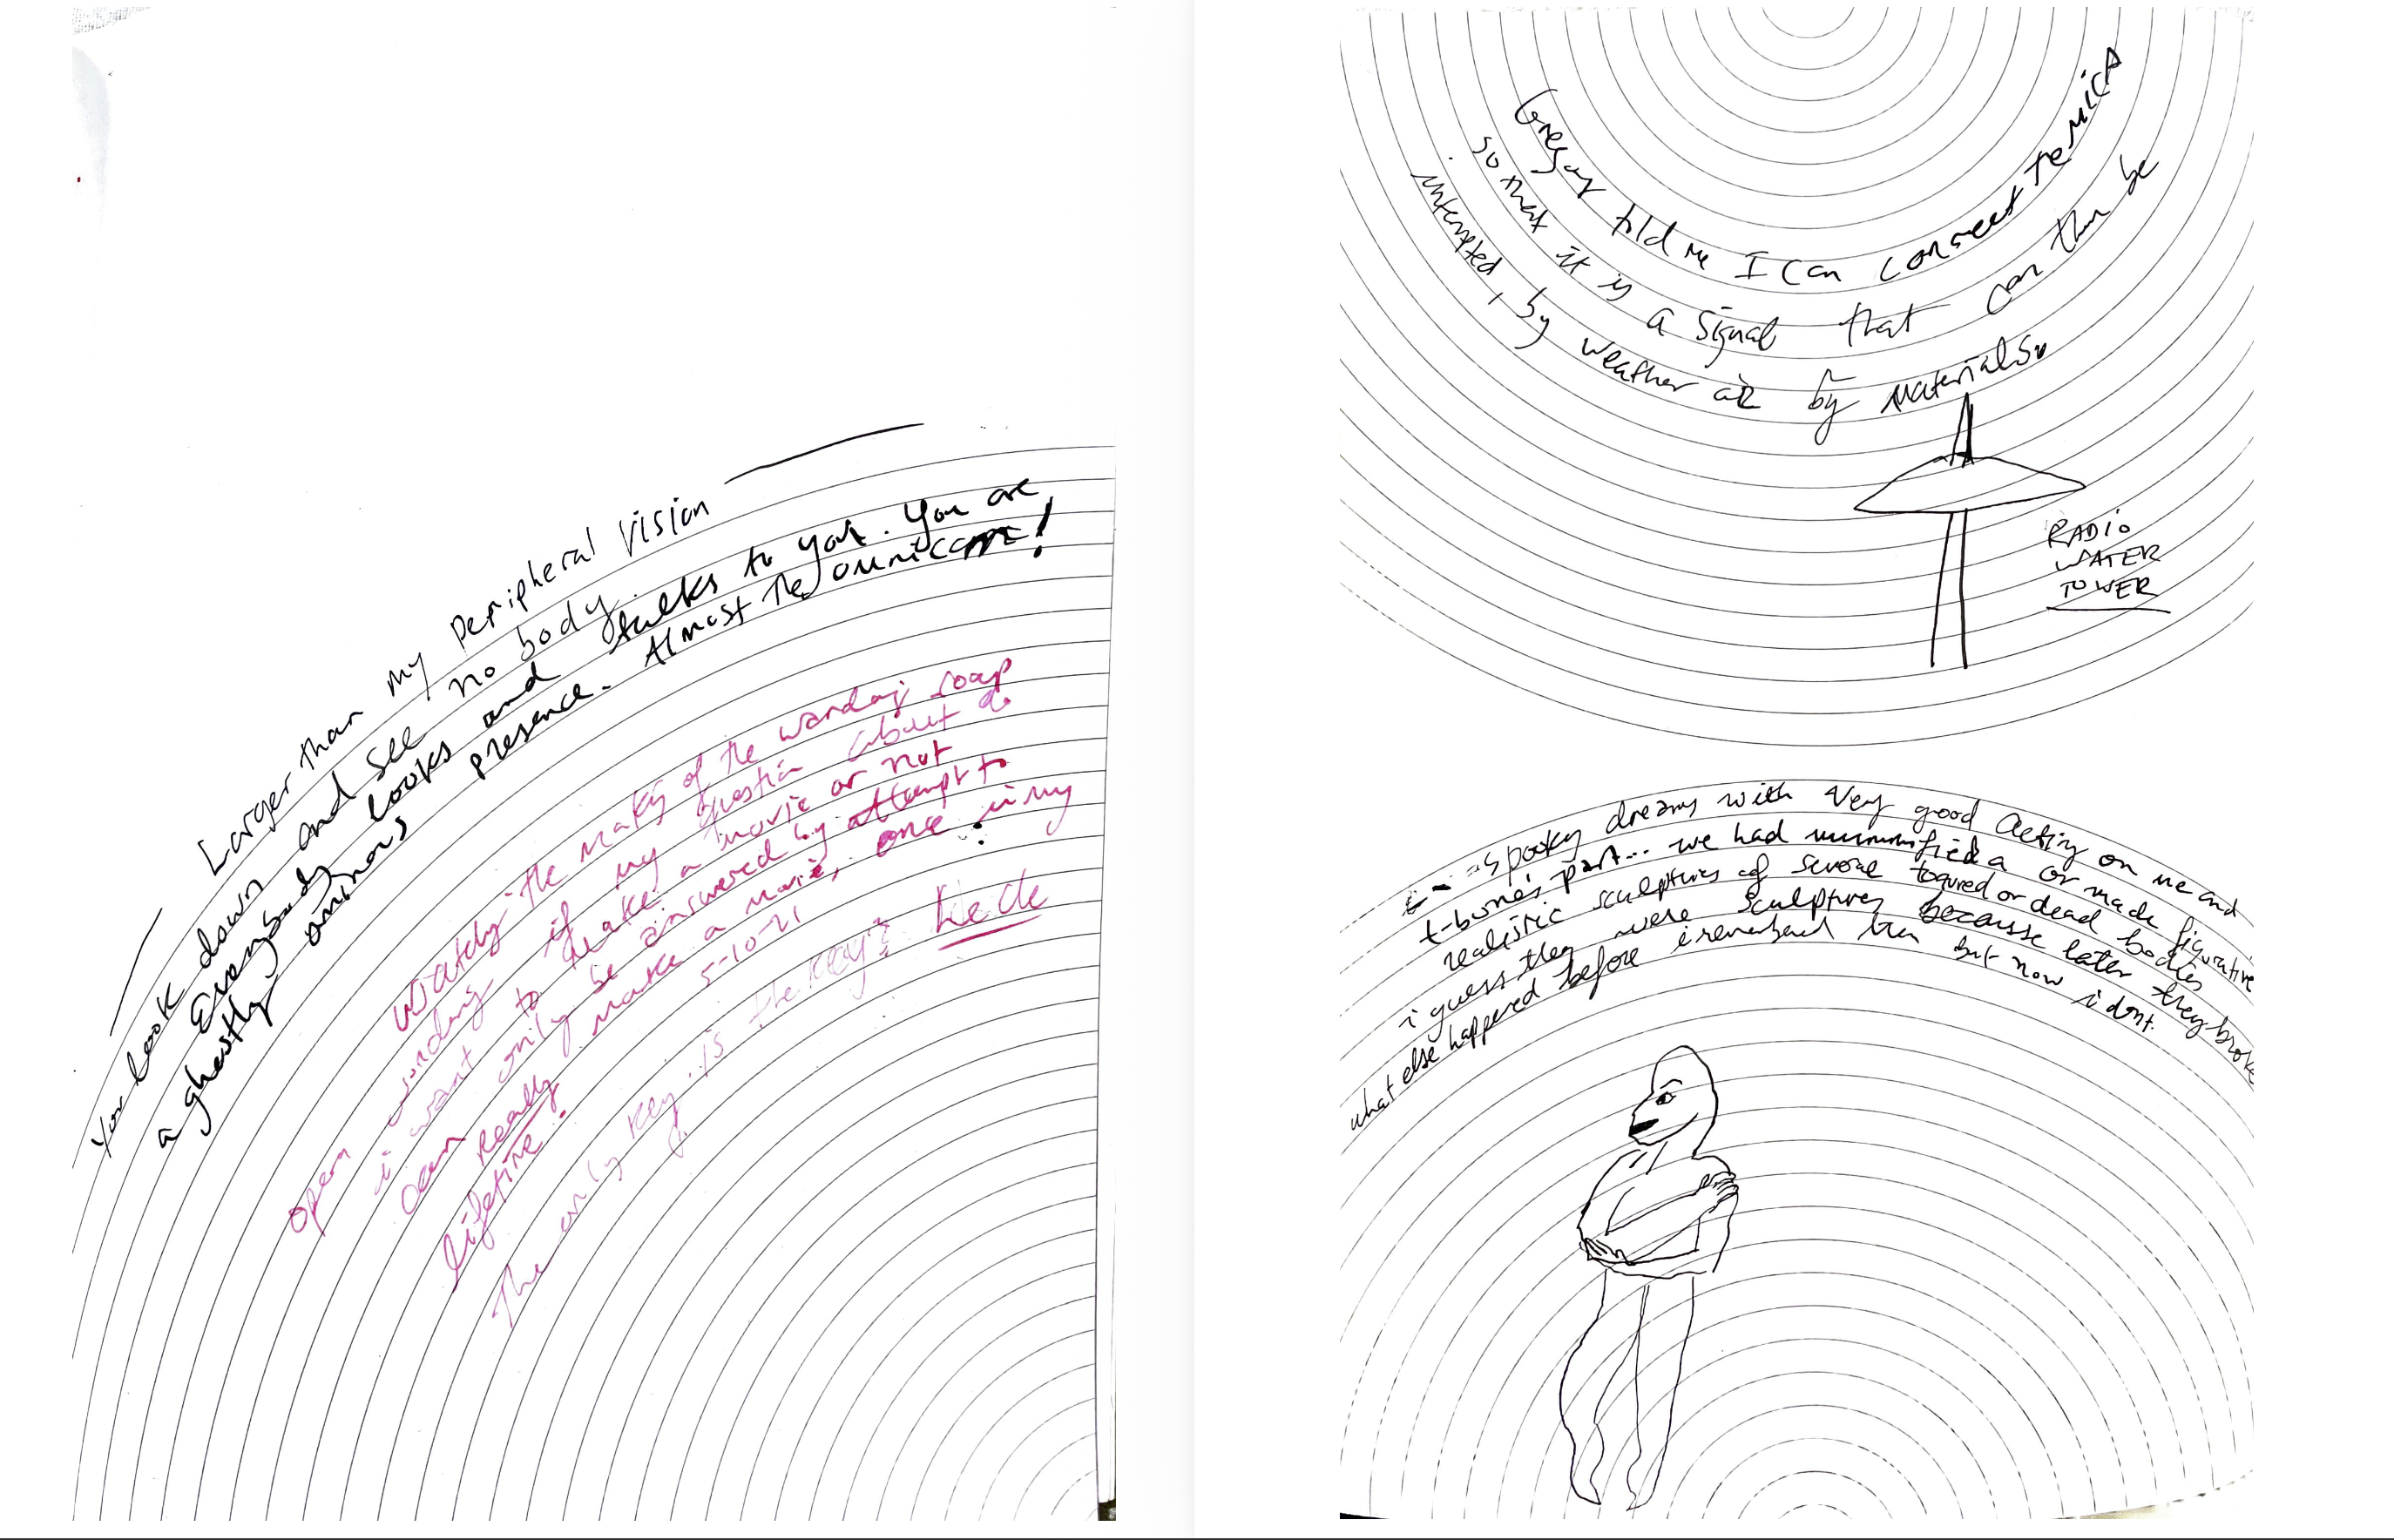 Larger than my peripheral vision
You look down and see no body.
Everybody looks and talks to you. You are
a ghostly ominous presence. Almost the omnicam!
watchg the makig of the wardaj soap
open wondrig if my question about
i want to make a movie or not
can only be ainswered by attempt to
really make a movie, once in my
lifetime.
5-10-21
The only key is the key?
told me I can connect
so that it is a signal that can then be
interrupted, by weather or by materials
RADIO
WATER
TOWER
spooky dreams with very good acting on me and
t-bone's part... we had mummified a or made figurative
realistic sculptures of severe or dead bodies
i guess they were sculptures because later they broke
what else happened before i but now i dont.